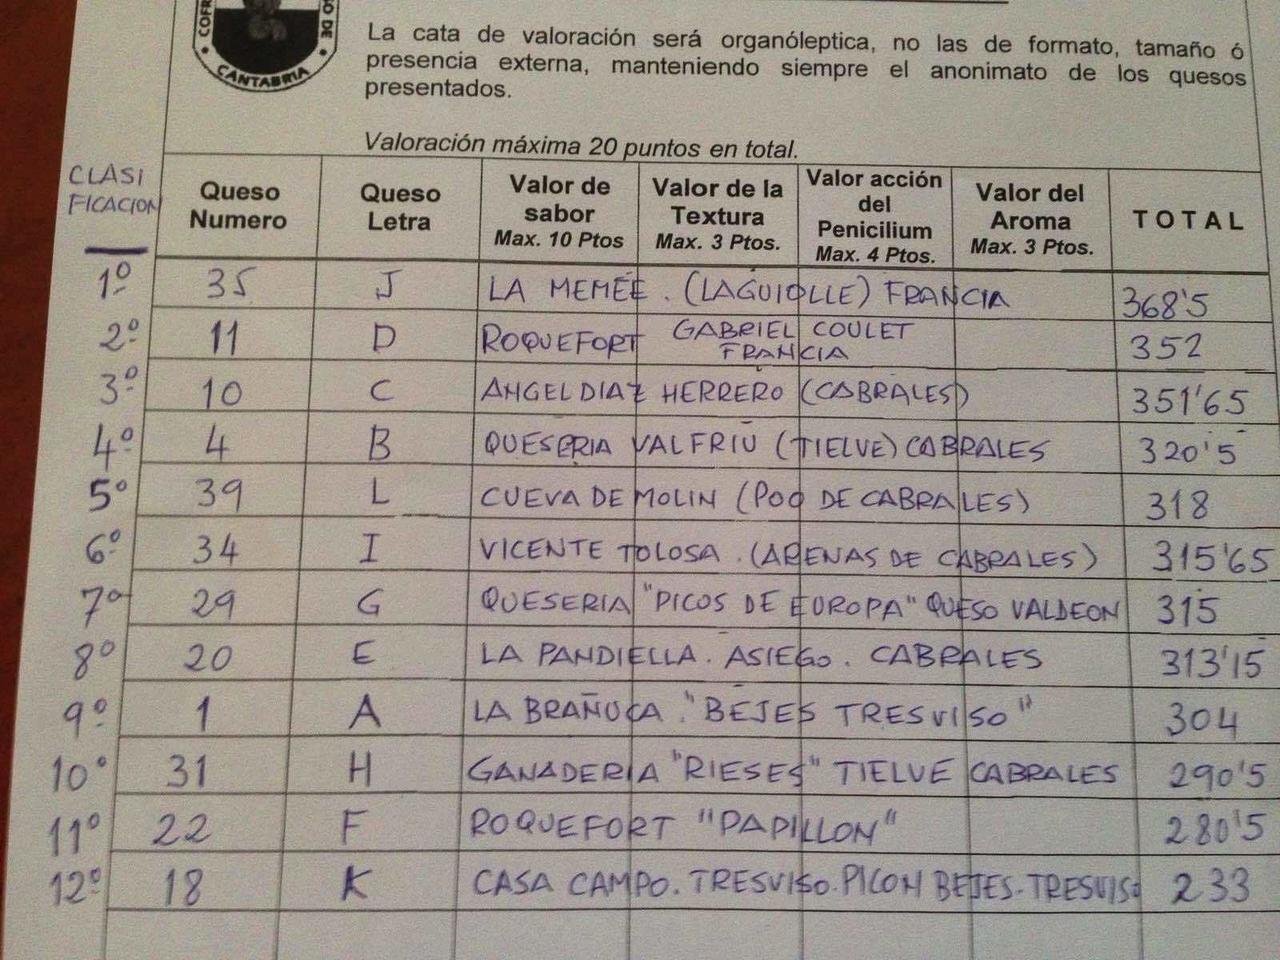 COFR
SO DE
• CANTABRIA •
La cata de valoración será organóleptica, no las de formato, tamaño ó
presencia externa, manteniendo siempre el anonimato de los quesos
presentados.
Valoración máxima 20 puntos en total.
CLASI
FICACION
Queso Numero
Queso Letra
Valor de sabor Max. 10 Ptos
Valor de la Textura Max. 3 Ptos.
Valor acción del Penicilium Max. 4 Ptos.
Valor del Aroma Max. 3 Ptos.
TOTAL
1º 35 J LA MEMÉE . (LAGUIOLLE) FRANCIA 368'5
2º 11 D ROQUEFORT GABRIEL COULET FRANCIA 352
3º 10 C ANGEL DIAZ HERRERO (CABRALES) 351'65
4º 4 B QUESERIA VALFRIU (TIELVE) CABRALES 320'5
5º 39 L CUEVA DE MOLIN (POO DE CABRALES) 318
6º 34 I VICENTE TOLOSA . (ARENAS DE CABRALES) 315'65
7º 29 G QUESERIA "PICOS DE EUROPA" QUESO VALDEON 315
8º 20 E LA PANDIELLA . ASIEGO . CABRALES 313'15
9º 1 A LA BRAÑUCA . "BEJES TRESVISO" 304
10º 31 H GANADERIA "RIESES" TIELVE CABRALES 290'5
11º 22 F ROQUEFORT "PAPILLON" 280'5
12º 18 K CASA CAMPO. TRESVISO. PICON BEJES-TRESVISO 233